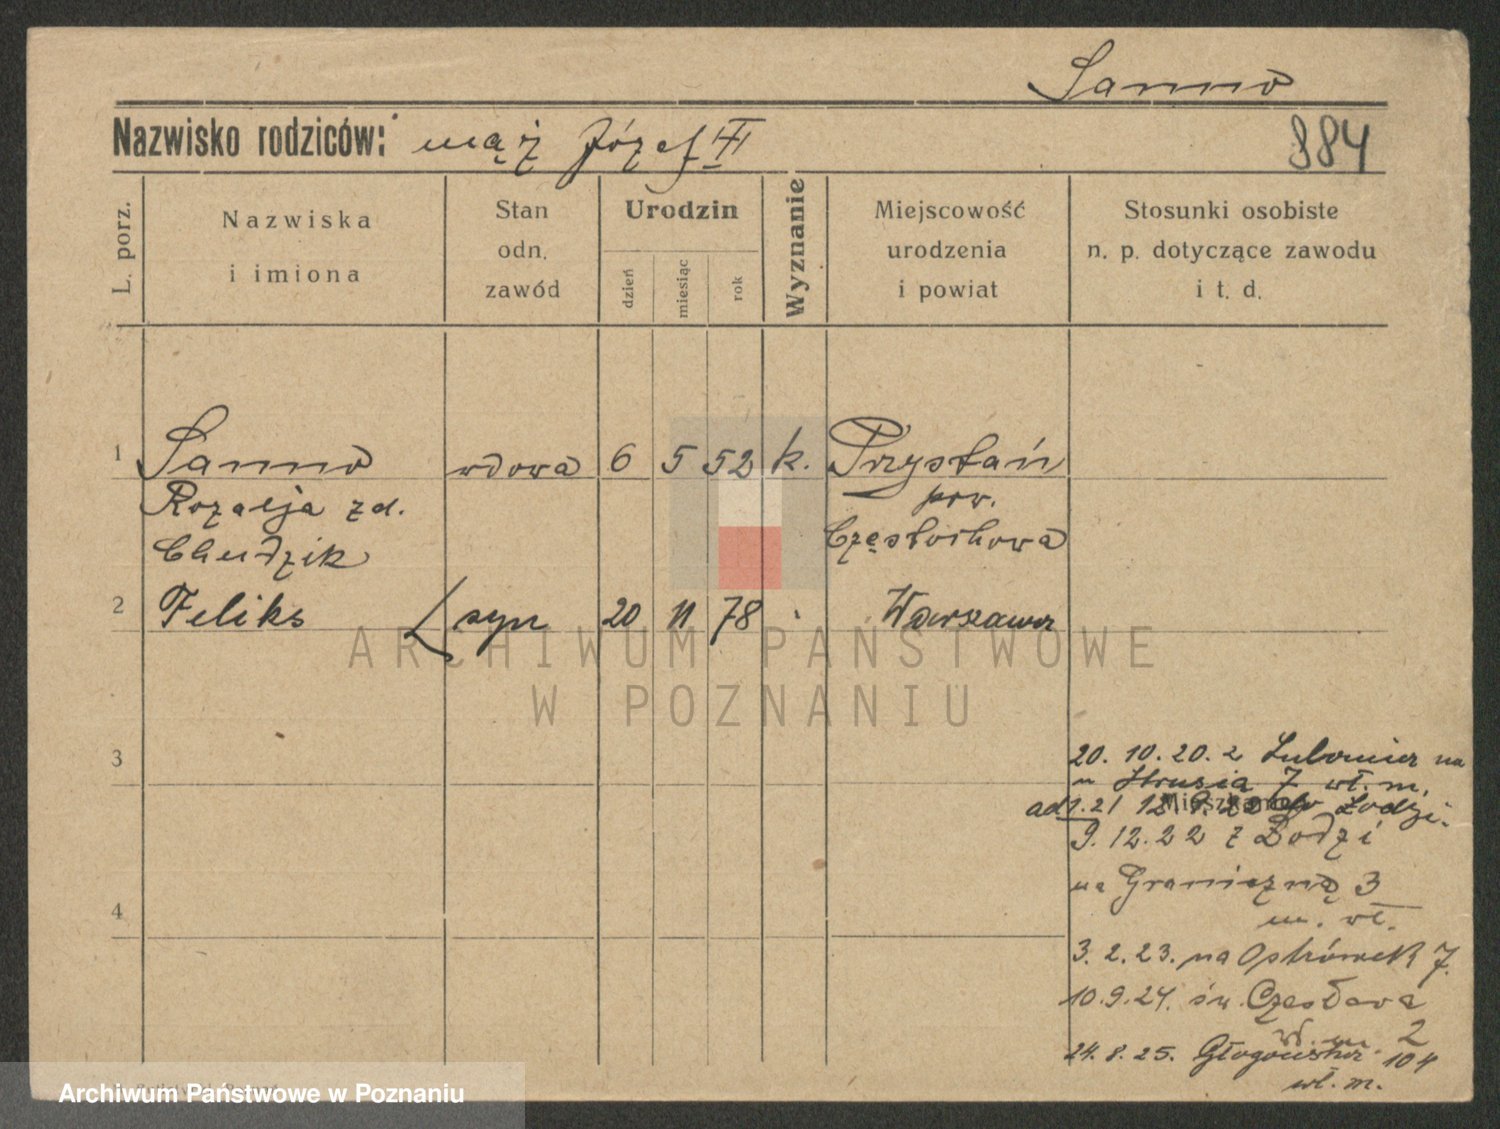 Sanno
Nazwisko rodziców: mąż Józef
884
L. porz.
Nazwiska
i imiona
Stan
odn.
zawód
Urodzin
dzień
miesiąc
rok
Wyznanie
Miejscowość
urodzenia
i powiat
Stosunki osobiste
n. p. dotyczące zawodu
i t. d.
1 Sanno wdowa 6 5 52 k. Przystań
Rozalja zd. pow.
Chudzik Częstochowa
2 Feliks syn 20 11 78 Warszawa
ARCHIWUM PAŃSTWOWE
W POZNANIU
3
20. 10. 20. z Lubomier na
7 wł. m.
1.21 do Łodzi.
9. 12. 22 z Łodzi
na Graniczną 3
m. wł.
4
3. 2. 23. na Ostrówek 7.
10. 9. 24. św. Czesława
wł. m. 2
24. 8. 25. Głogowska 104
wł. m.
Archiwum Państwowe w Poznaniu